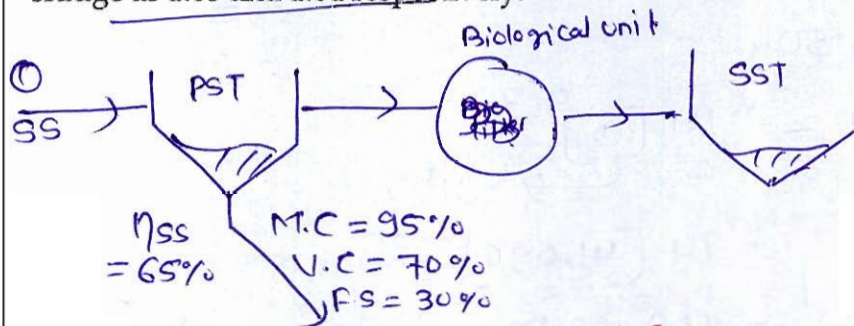 Biological unit
①
SS
PST
SST
ηss
= 65%
M.C = 95%
V.C = 70%
F.S = 30%